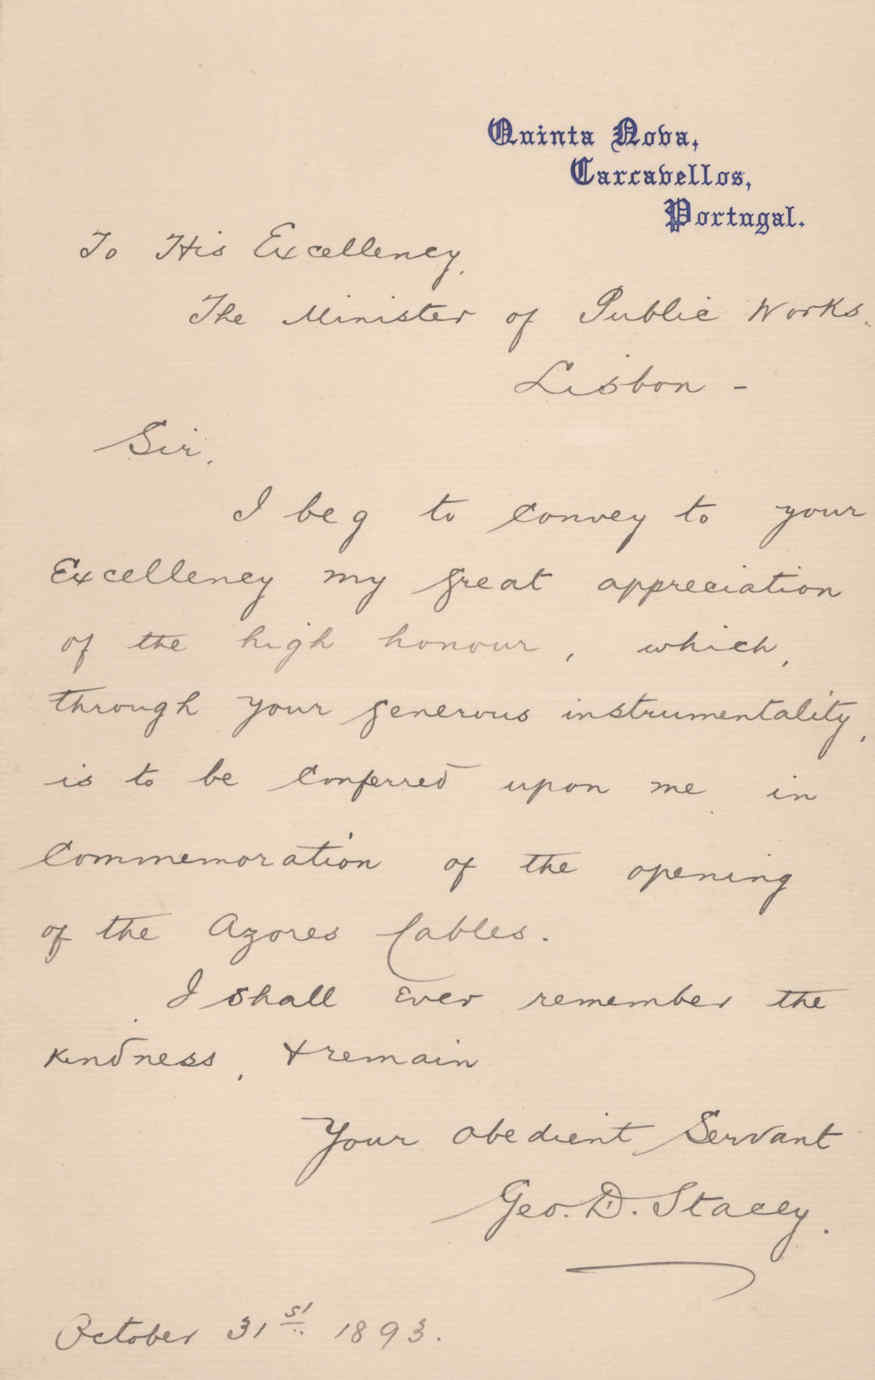 Quinta Nova,
Carcavellos,
Portugal.
To His Excellency,
The Minister of Public Works.
Lisbon -
Sir,
I beg to convey to your
Excellency my great appreciation
of the high honour, which,
through your generous instrumentality,
is to be conferred upon me in
commemoration of the opening
of the Azores Cables.
I shall ever remember the
kindness, & remain
Your obedient Servant
Geo. D. Stacey.
October 31st 1893.